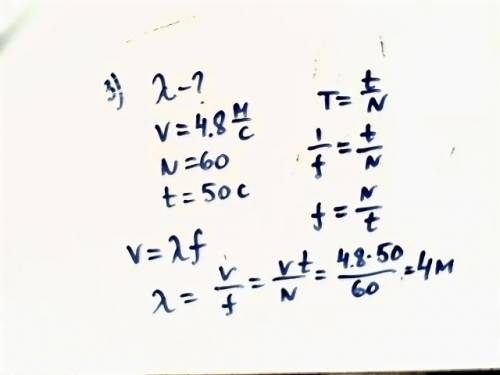 3) λ-?
v=4.8 м/с
N=60
t=50с
T=t/N
1/f=t/N
f=N/t
v=λf
λ=v/f=vt/N=4.8·50/60=4м